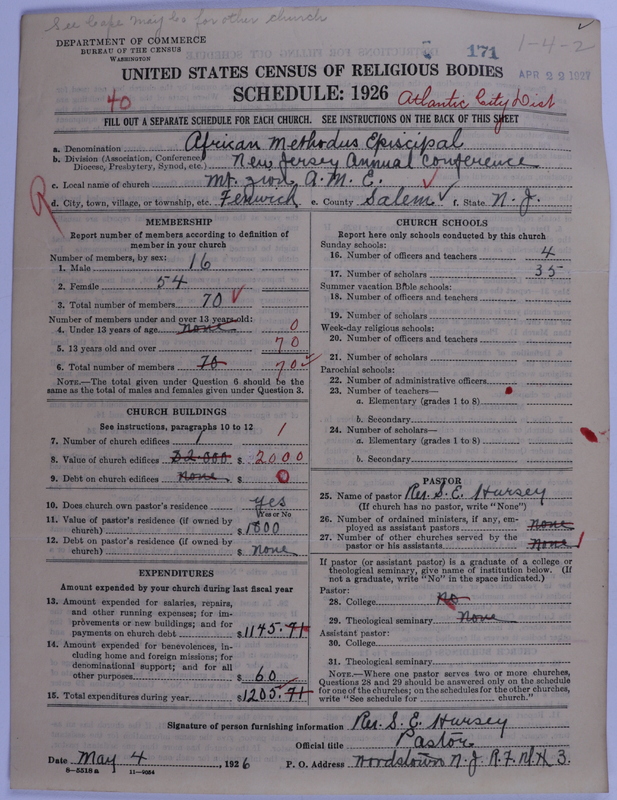 See Cape May Co for other church
DEPARTMENT OF COMMERCE
BUREAU OF THE CENSUS
WASHINGTON
171
1-4-2
APR 29 1927
UNITED STATES CENSUS OF RELIGIOUS BODIES
SCHEDULE: 1926
40
Atlantic City Dist
FILL OUT A SEPARATE SCHEDULE FOR EACH CHURCH. SEE INSTRUCTIONS ON THE BACK OF THIS SHEET
a. Denomination African Methodus Episcipal
b. Division (Association, Conference, Diocese, Presbytery, Synod, etc.) New Jersey Annual Conference
c. Local name of church Mt. Zion A. M. E.
d. City, town, village, or township, etc. Fenwick e. County Salem f. State N. J.
R
MEMBERSHIP
Report number of members according to definition of
member in your church
Number of members, by sex:
1. Male 16
2. Female 54
3. Total number of members 70
Number of members under and over 13 years old:
4. Under 13 years of age none 0
5. 13 years old and over 70
6. Total number of members 70 70
NOTE.—The total given under Question 6 should be the
same as the total of males and females given under Question 3.
CHURCH BUILDINGS
See instructions, paragraphs 10 to 12
7. Number of church edifices 1 1
8. Value of church edifices $2.000 $ 2000
9. Debt on church edifices none $ 0
10. Does church own pastor's residence yes
Yes or No
11. Value of pastor's residence (if owned by
church) $1800
12. Debt on pastor's residence (if owned by
church) $ none
EXPENDITURES
Amount expended by your church during last fiscal year
13. Amount expended for salaries, repairs,
and other running expenses; for im-
provements or new buildings; and for
payments on church debt $1145.71
14. Amount expended for benevolences, in-
cluding home and foreign missions; for
denominational support; and for all
other purposes $ 60
15. Total expenditures during year $1205.71
CHURCH SCHOOLS
Report here only schools conducted by this church
Sunday schools:
16. Number of officers and teachers 4
17. Number of scholars 35
Summer vacation Bible schools:
18. Number of officers and teachers
19. Number of scholars
Week-day religious schools:
20. Number of officers and teachers
21. Number of scholars
Parochial schools:
22. Number of administrative officers
23. Number of teachers—
a. Elementary (grades 1 to 8)
b. Secondary
24. Number of scholars—
a. Elementary (grades 1 to 8)
b. Secondary
PASTOR
25. Name of pastor Rev. S. E. Hursey
(If church has no pastor, write "None")
26. Number of ordained ministers, if any, em-
ployed as assistant pastors none
27. Number of other churches served by the
pastor or his assistants none 1
If pastor (or assistant pastor) is a graduate of a college or
theological seminary, give name of institution below. (If
not a graduate, write "No" in the space indicated.)
Pastor:
28. College No
29. Theological seminary None
Assistant pastor:
30. College
31. Theological seminary
NOTE.—Where one pastor serves two or more churches,
Questions 28 and 29 should be answered only on the schedule
for one of the churches; on the schedules for the other churches,
write "See schedule for church."
Signature of person furnishing information Rev. S. E. Hursey
Official title Pastor
Date May 4, 1926 P. O. Address Woodstown N. J. R. F. N. # 3.
8-5518 a 11-9054